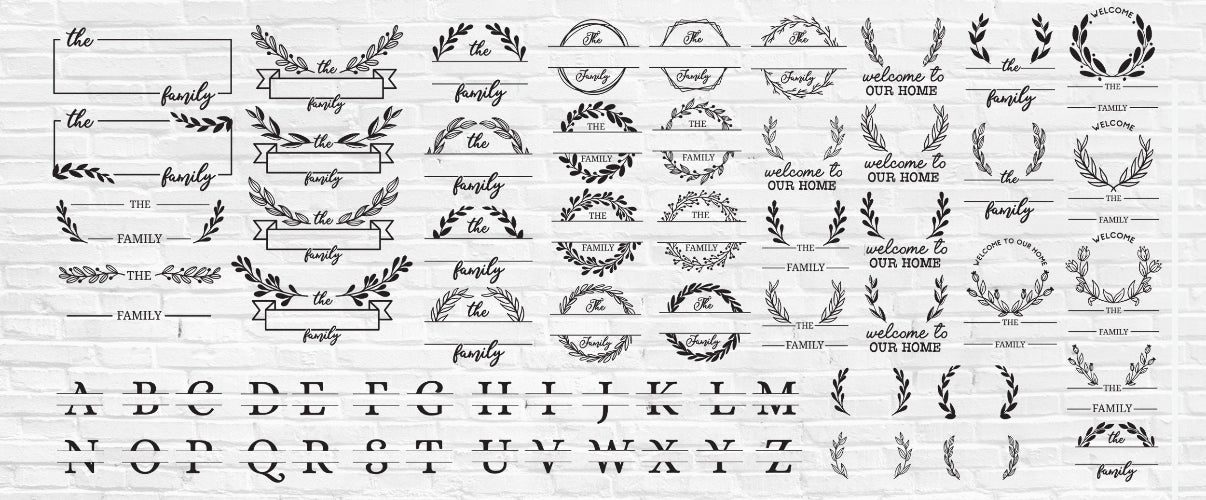 the
family
the
family
THE
FAMILY
THE
FAMILY
the
family
the
family
the
family
the
family
the
family
the
family
the
family
the
family
The
Family
THE
FAMILY
THE
FAMILY
The
Family
The
Family
THE
FAMILY
THE
FAMILY
The
Family
The
Family
welcome to
OUR HOME
THE
FAMILY
THE
FAMILY
welcome to
OUR HOME
welcome to
OUR HOME
welcome to
OUR HOME
welcome to
OUR HOME
the
family
the
family
WELCOME TO OUR HOME
THE
FAMILY
WELCOME
THE
FAMILY
WELCOME
THE
FAMILY
WELCOME
THE
FAMILY
THE
FAMILY
the
family
A B C D E F G H I J K L M
N O P Q R S T U V W X Y Z